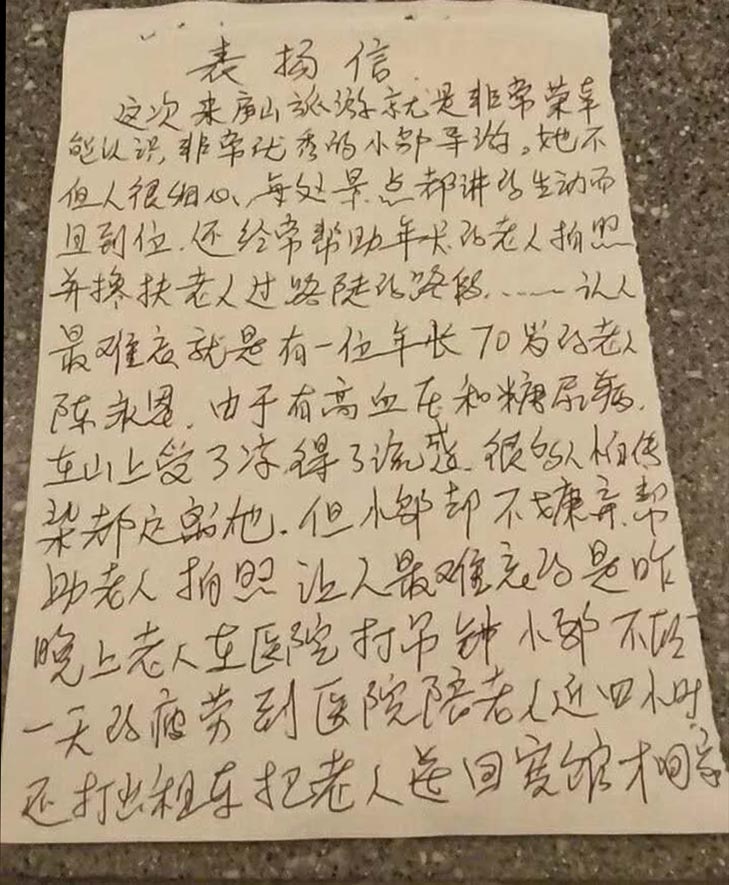 表扬信
这次来庐山旅游就是非常荣幸
能认识非常优秀的小邹导游。她不
但人很细心、每处景点都讲的生动而
且到位.还经常帮助年长的老人拍照
并搀扶老人过路陡的路段.……认人
最难忘就是有一位年长70岁的老人
陈永恩.由于有高血压和糖尿病.
在山上受了凉.得了流感.很多人怕传
染都远离他.但小邹却不嫌弃帮
助老人拍照让人最难忘的是昨
晚上老人在医院打吊钟小邹不顾
一天的疲劳到医院陪老人近四小时
还打出租车把老人送回宾馆才回家